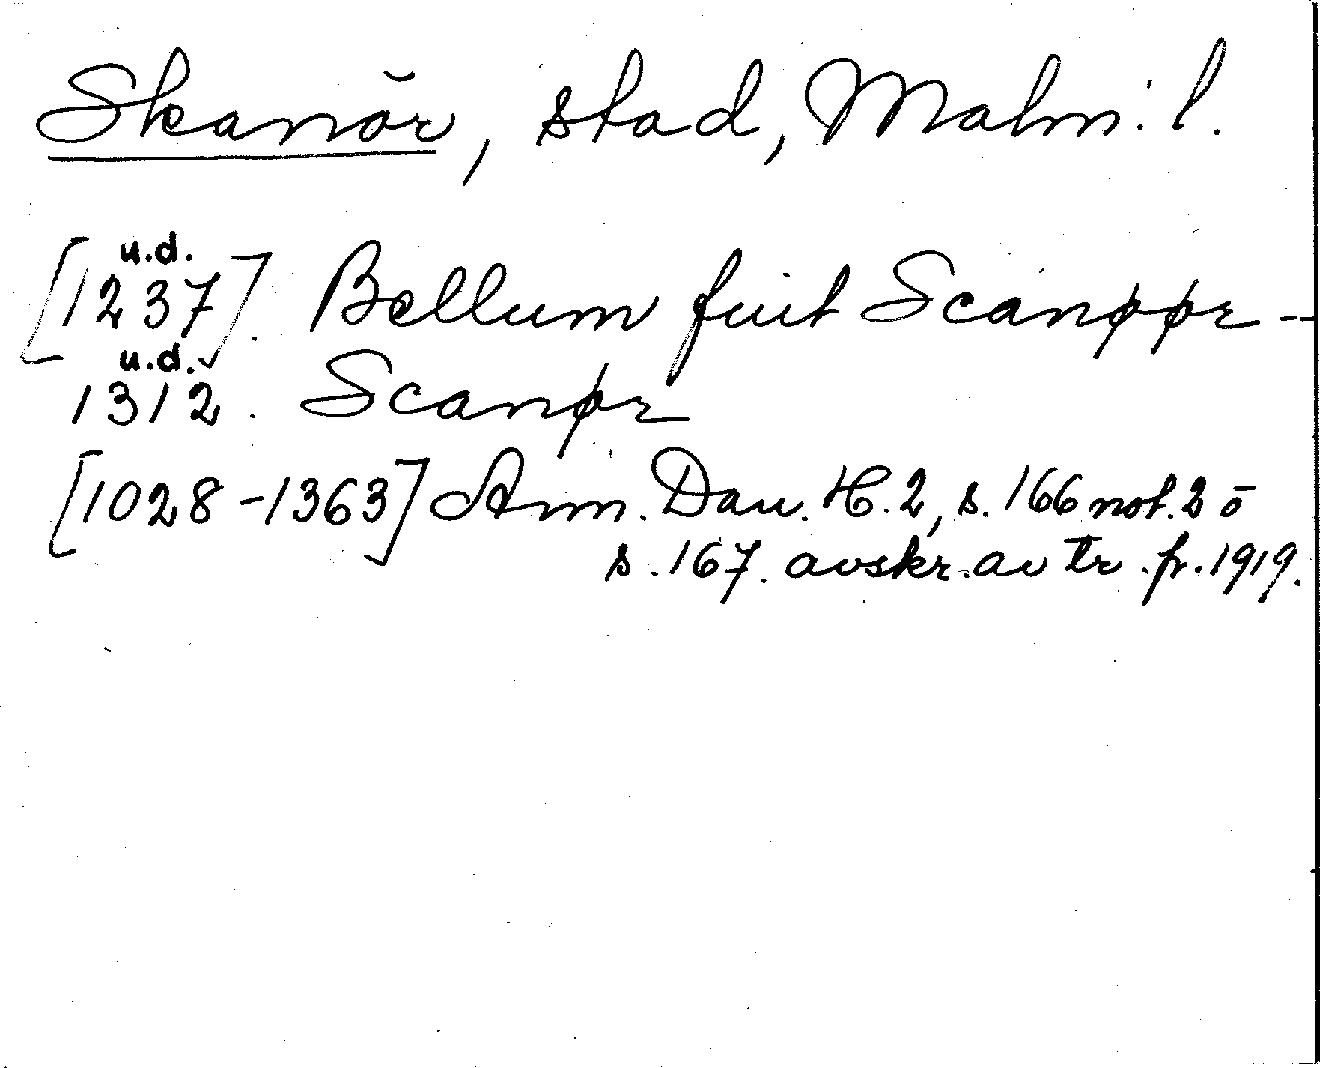 Skanör, stad, Malm. l.
u.d.
[1237]. Bellum fuit Scanøør --
u.d.
1312. Scanør
[1028-1363] Ann. Dan. H. 2, s. 166 not. 2 o
s. 167. avskr. av tr. fr. 1919.